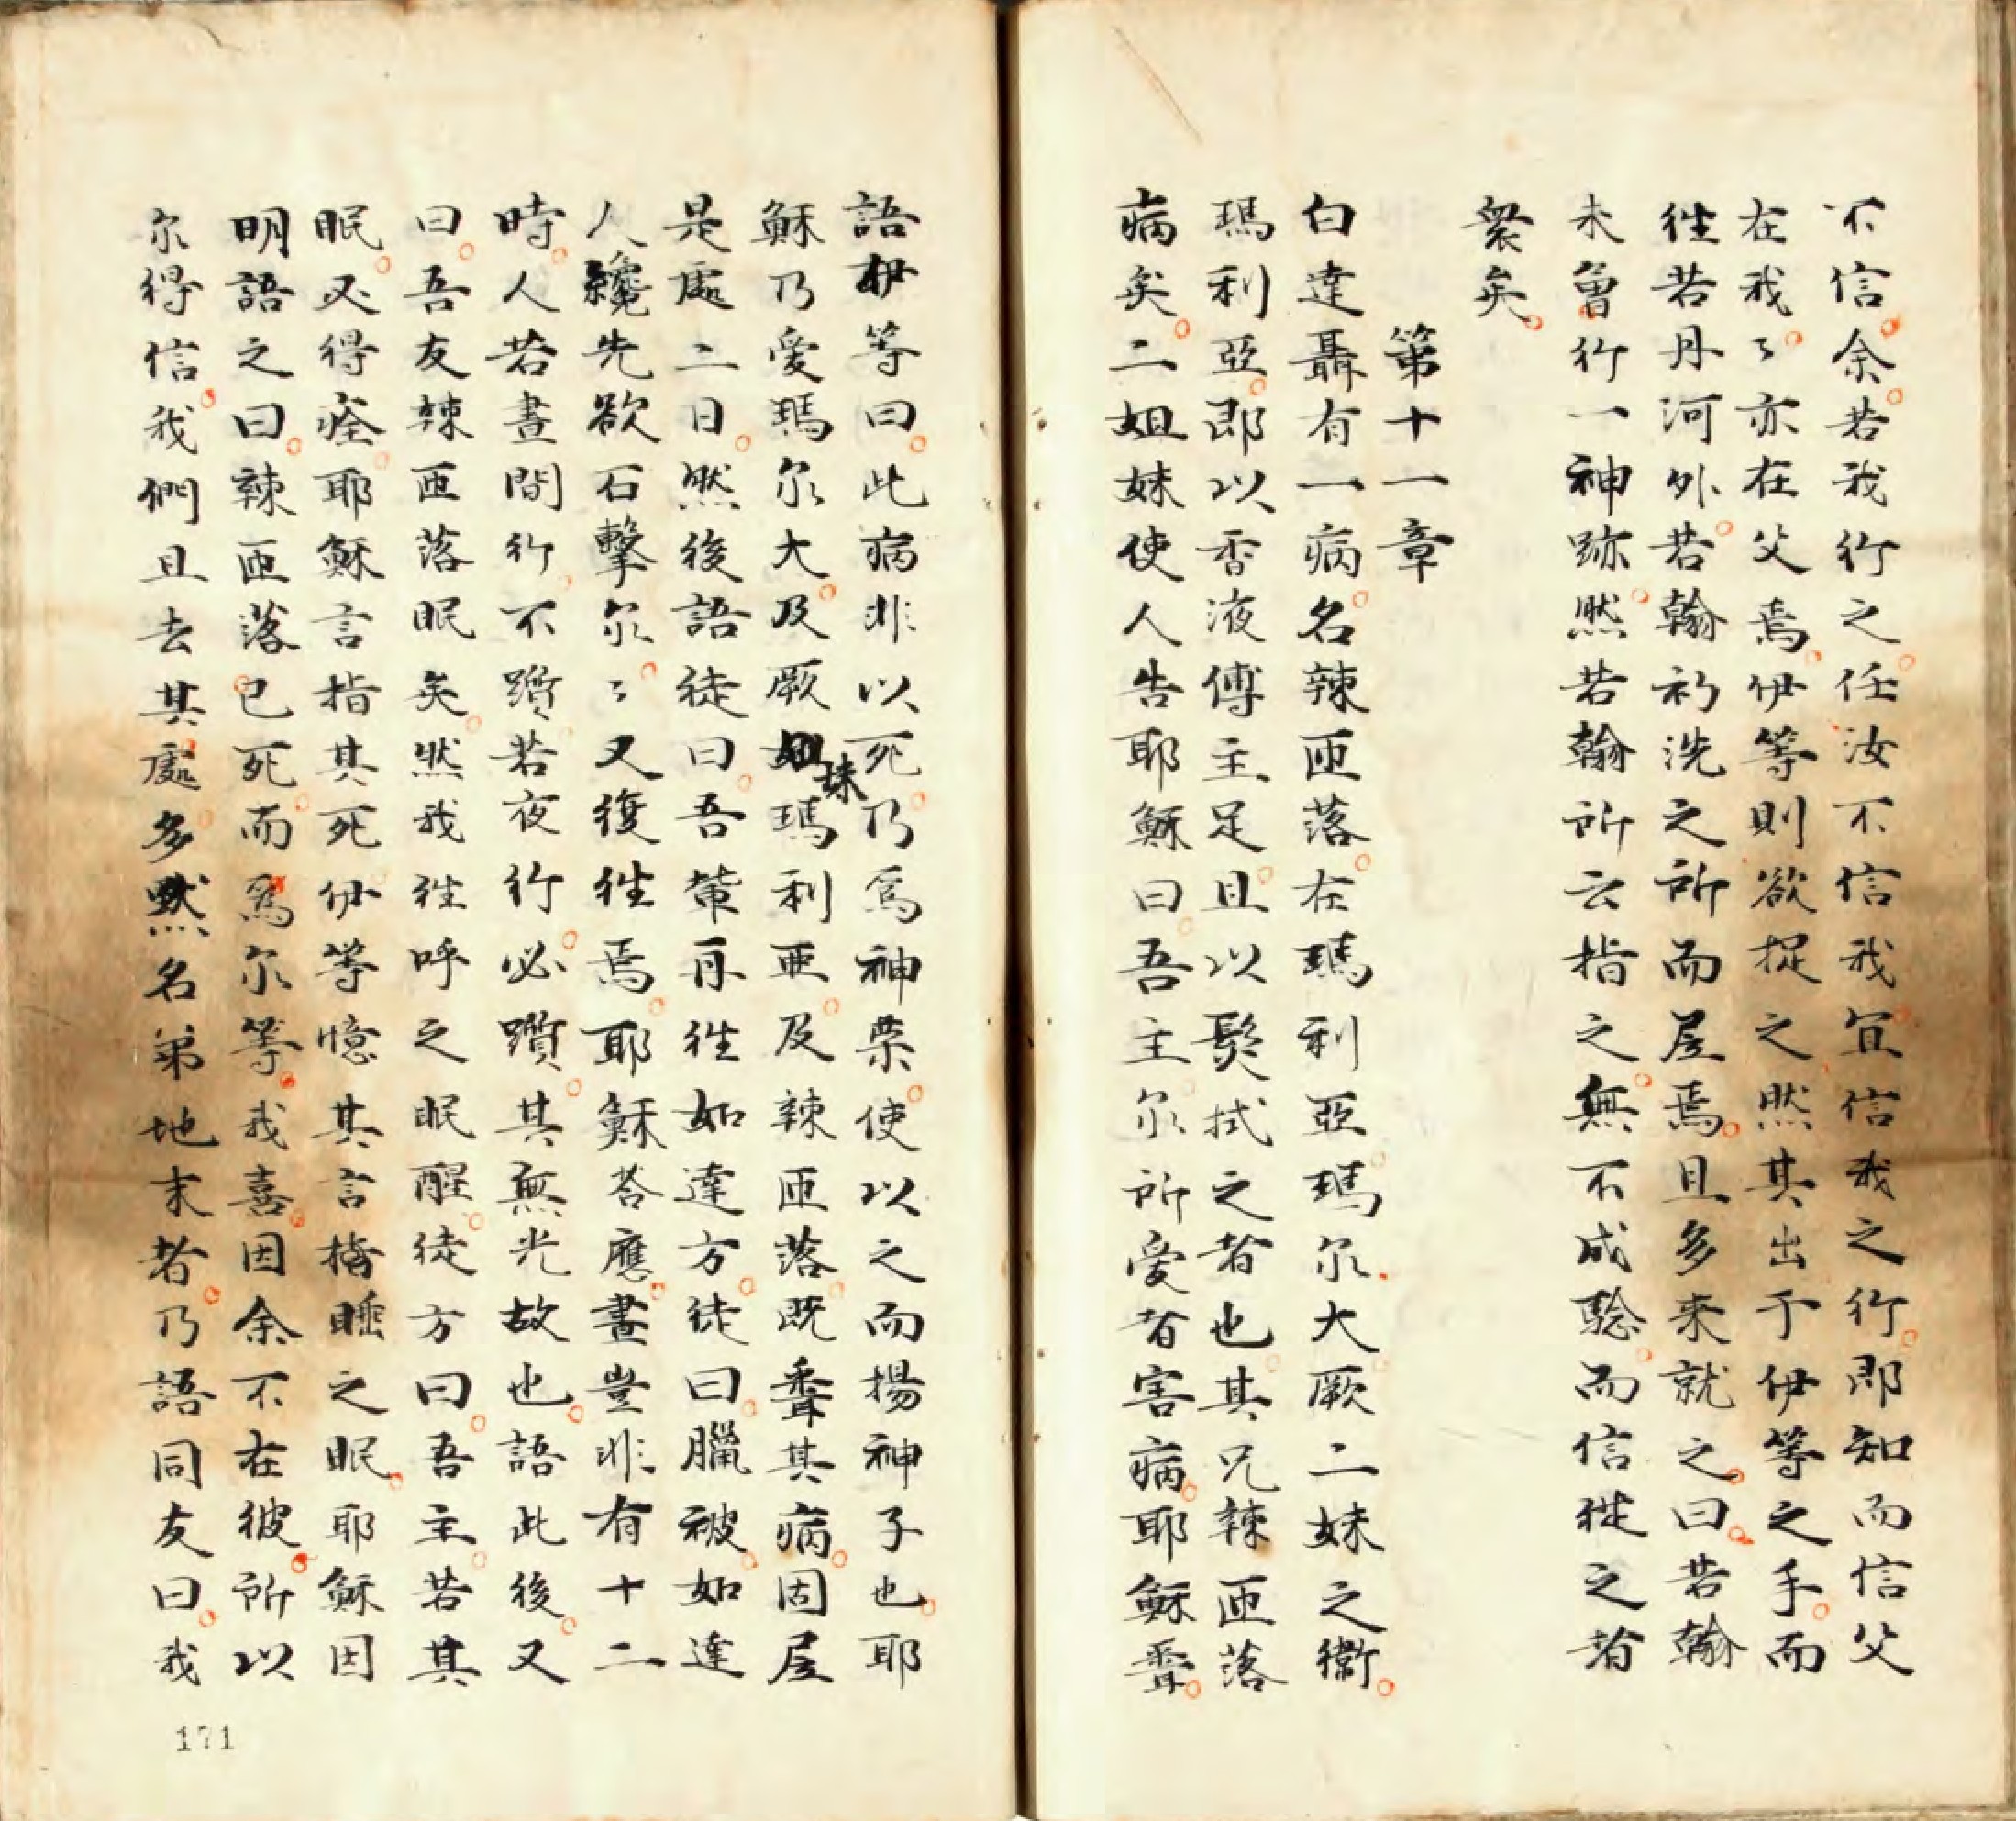 不信余若我行之任汝不信我宜信我之行即知而信父
在我〻亦在父焉伊等則欲捉之然其出于伊等之手而
徃若丹河外若翰礽洗之所而居焉且多来就之曰若翰
未曾行一神跡然若翰所云指之無不成騐而信従之者
衆矣
第十一章
白達聶有一病名辣匝落在瑪利亞瑪尔大厥二妹之衞
瑪利亞即以香液傅主足且以髮拭之者也其兄辣匝落
病矣二姐妹使人告耶穌曰吾主尔所愛者害病耶穌聞
語伊等曰此病非以死乃爲神荣使以之而揚神子也耶
穌乃愛瑪尔大及厥妹瑪利亜及辣匝落既聞其病固居
是處二日然後語徒曰吾輩再徃如達方徒曰臘被如達
人纔先欲石擊尔〻又復徃焉耶穌荅應晝豈非有十二
時人若晝間行不躓若夜行必躓其無光故也語此後又
曰吾友辣匝落眠矣然我徃呼之眠醒徒方曰吾主若其
眠必得痊耶穌言指其死伊等憶其言指睡之眠耶穌因
明語之曰辣匝落已死而爲尔等我喜因余不在彼所以
尔得信我們且去其處多默名弟地末者乃語同友曰我
171